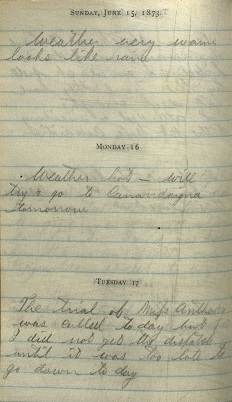 Sunday, June 15, 1873.
Weather very warm
looks like rain
Monday 16
Weather hot — will
try & go to Canandaigua
tomorrow
Tuesday 17
The trial of Miss Anthony
was called to day but
I did not get the dispatch
until it was too late to
go down to day